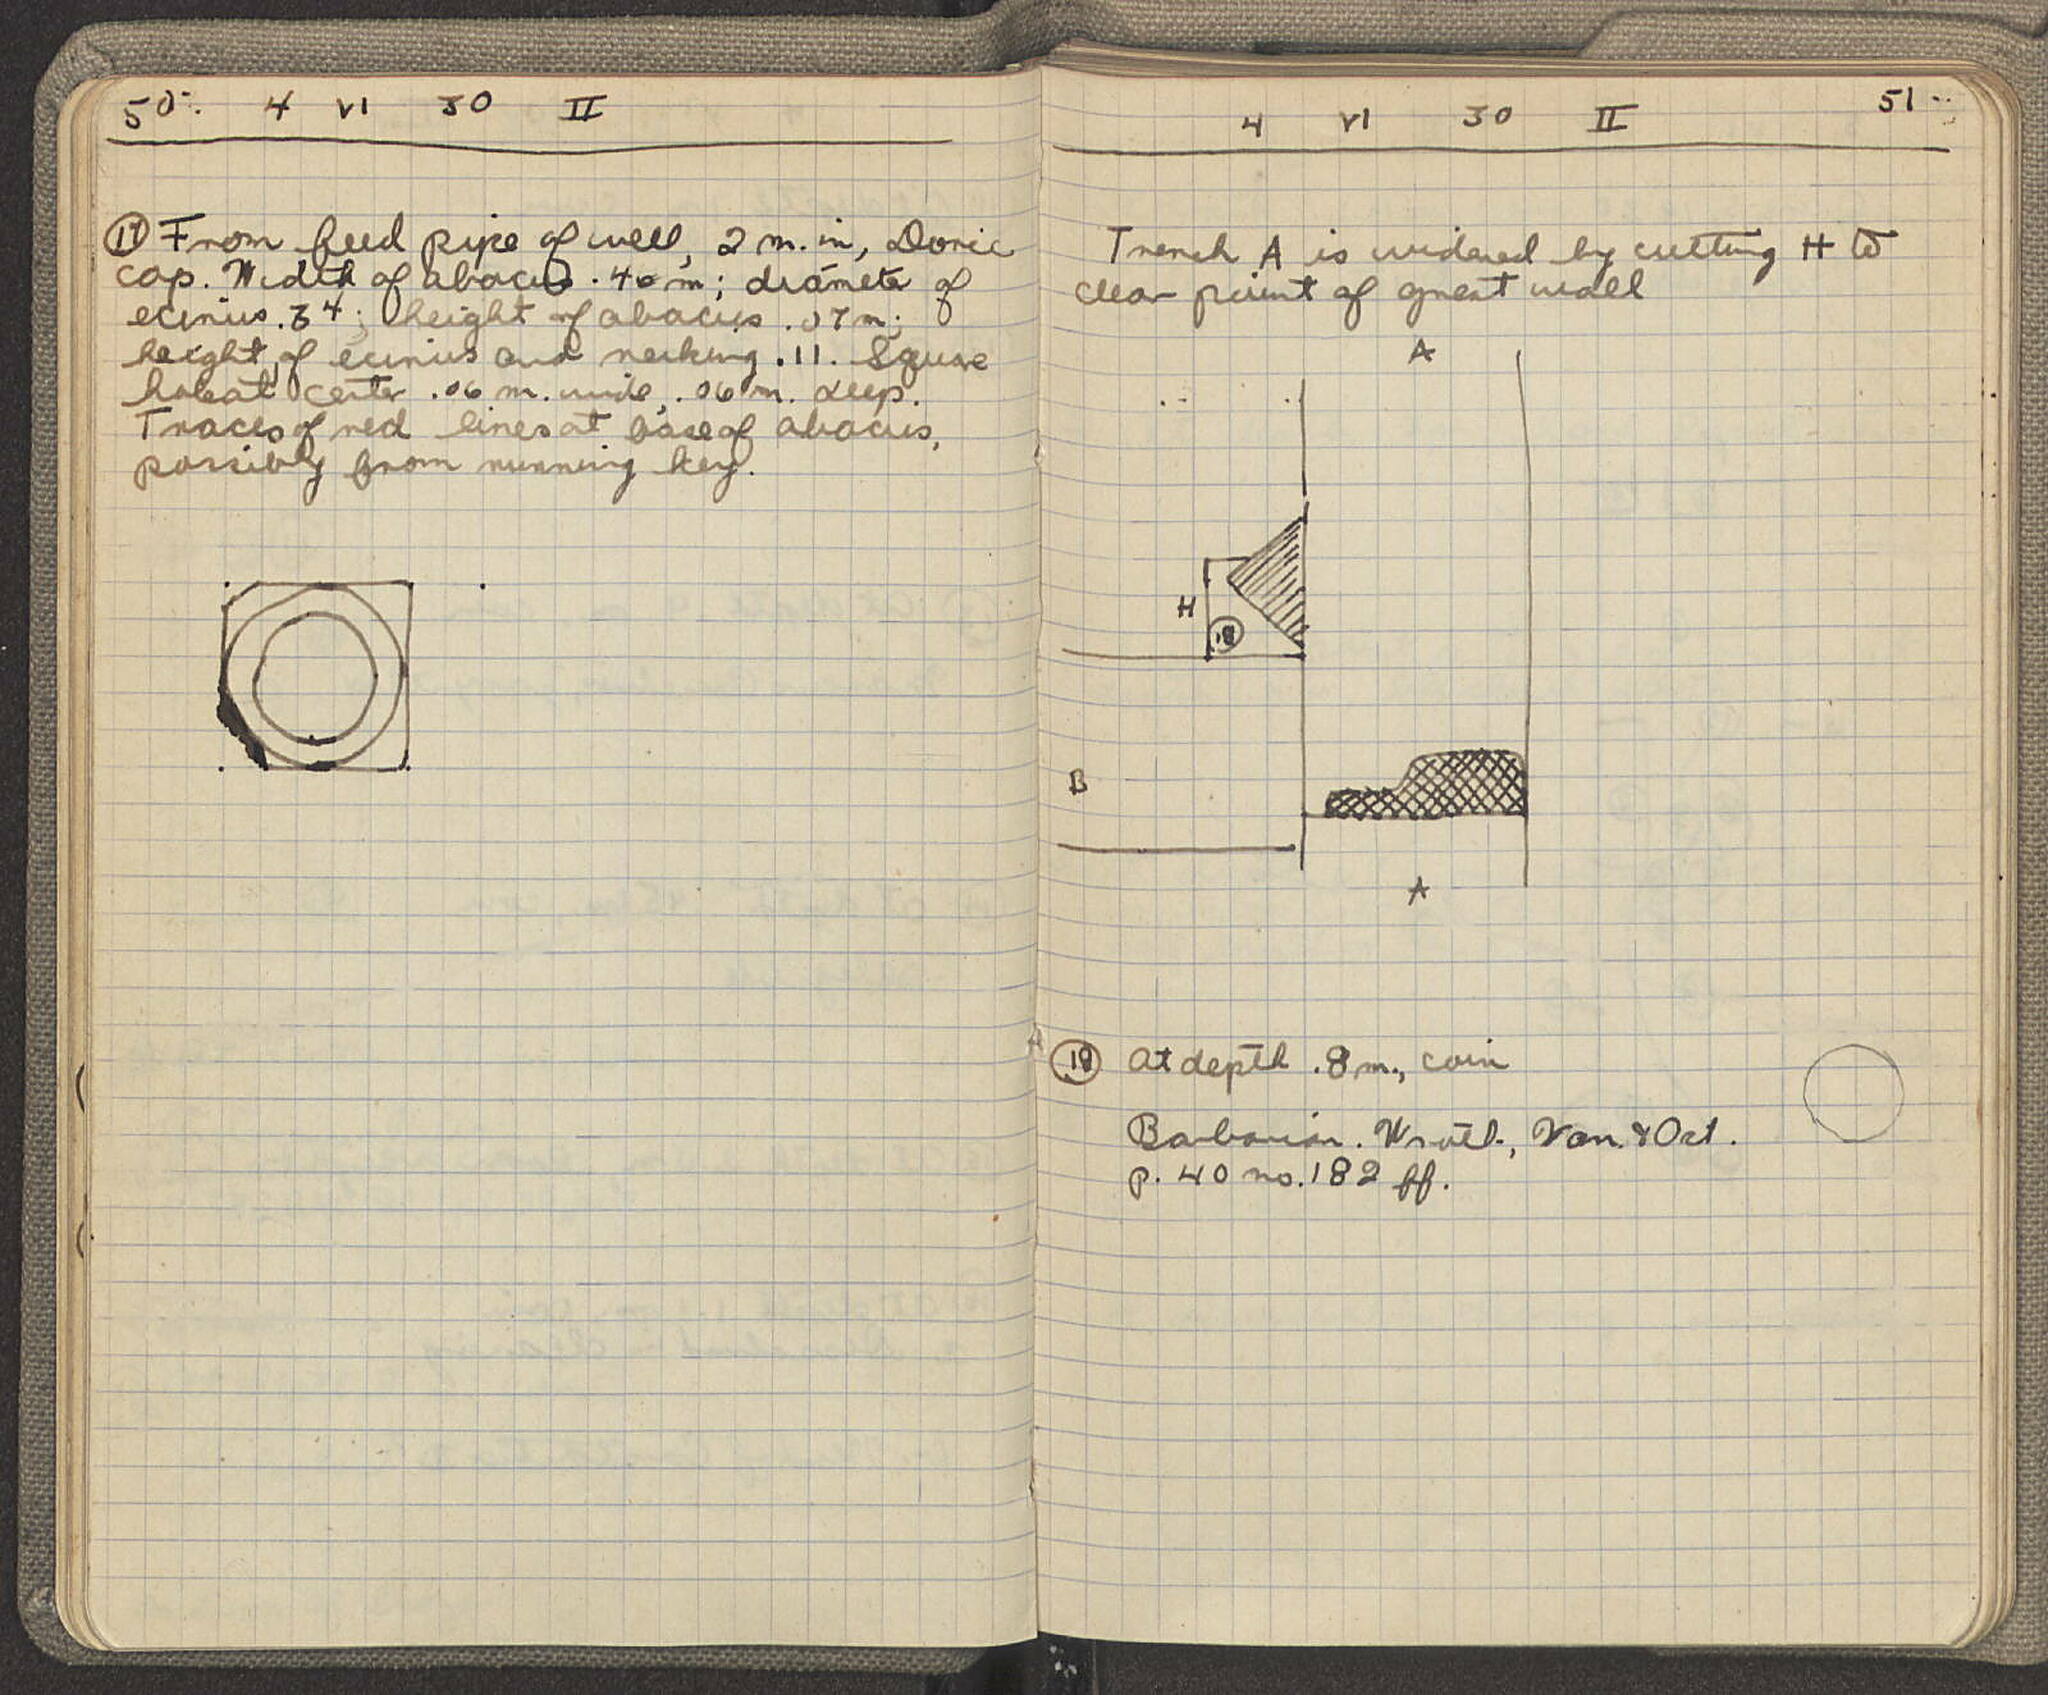 50. 4 VI 30 II
(17) From feed pipe of well, 2 m. in, Doric
cap. Width of abacus .40 m; diameter of
ecinus .34; height of abacus .07 m;
height of ecinus and necking .11. Square
hole at center .06 m. wide, .06 m. deep.
Traces of red lines at base of abacus,
possibly from running key.
4 VI 30 II 51
Trench A is widened by cutting H to
clear point of great wall
A
H
18
B
A
(18) At depth .8 m., coin
Barbarian. Wroth, Van. & Ost.
p. 40 no. 182 ff.